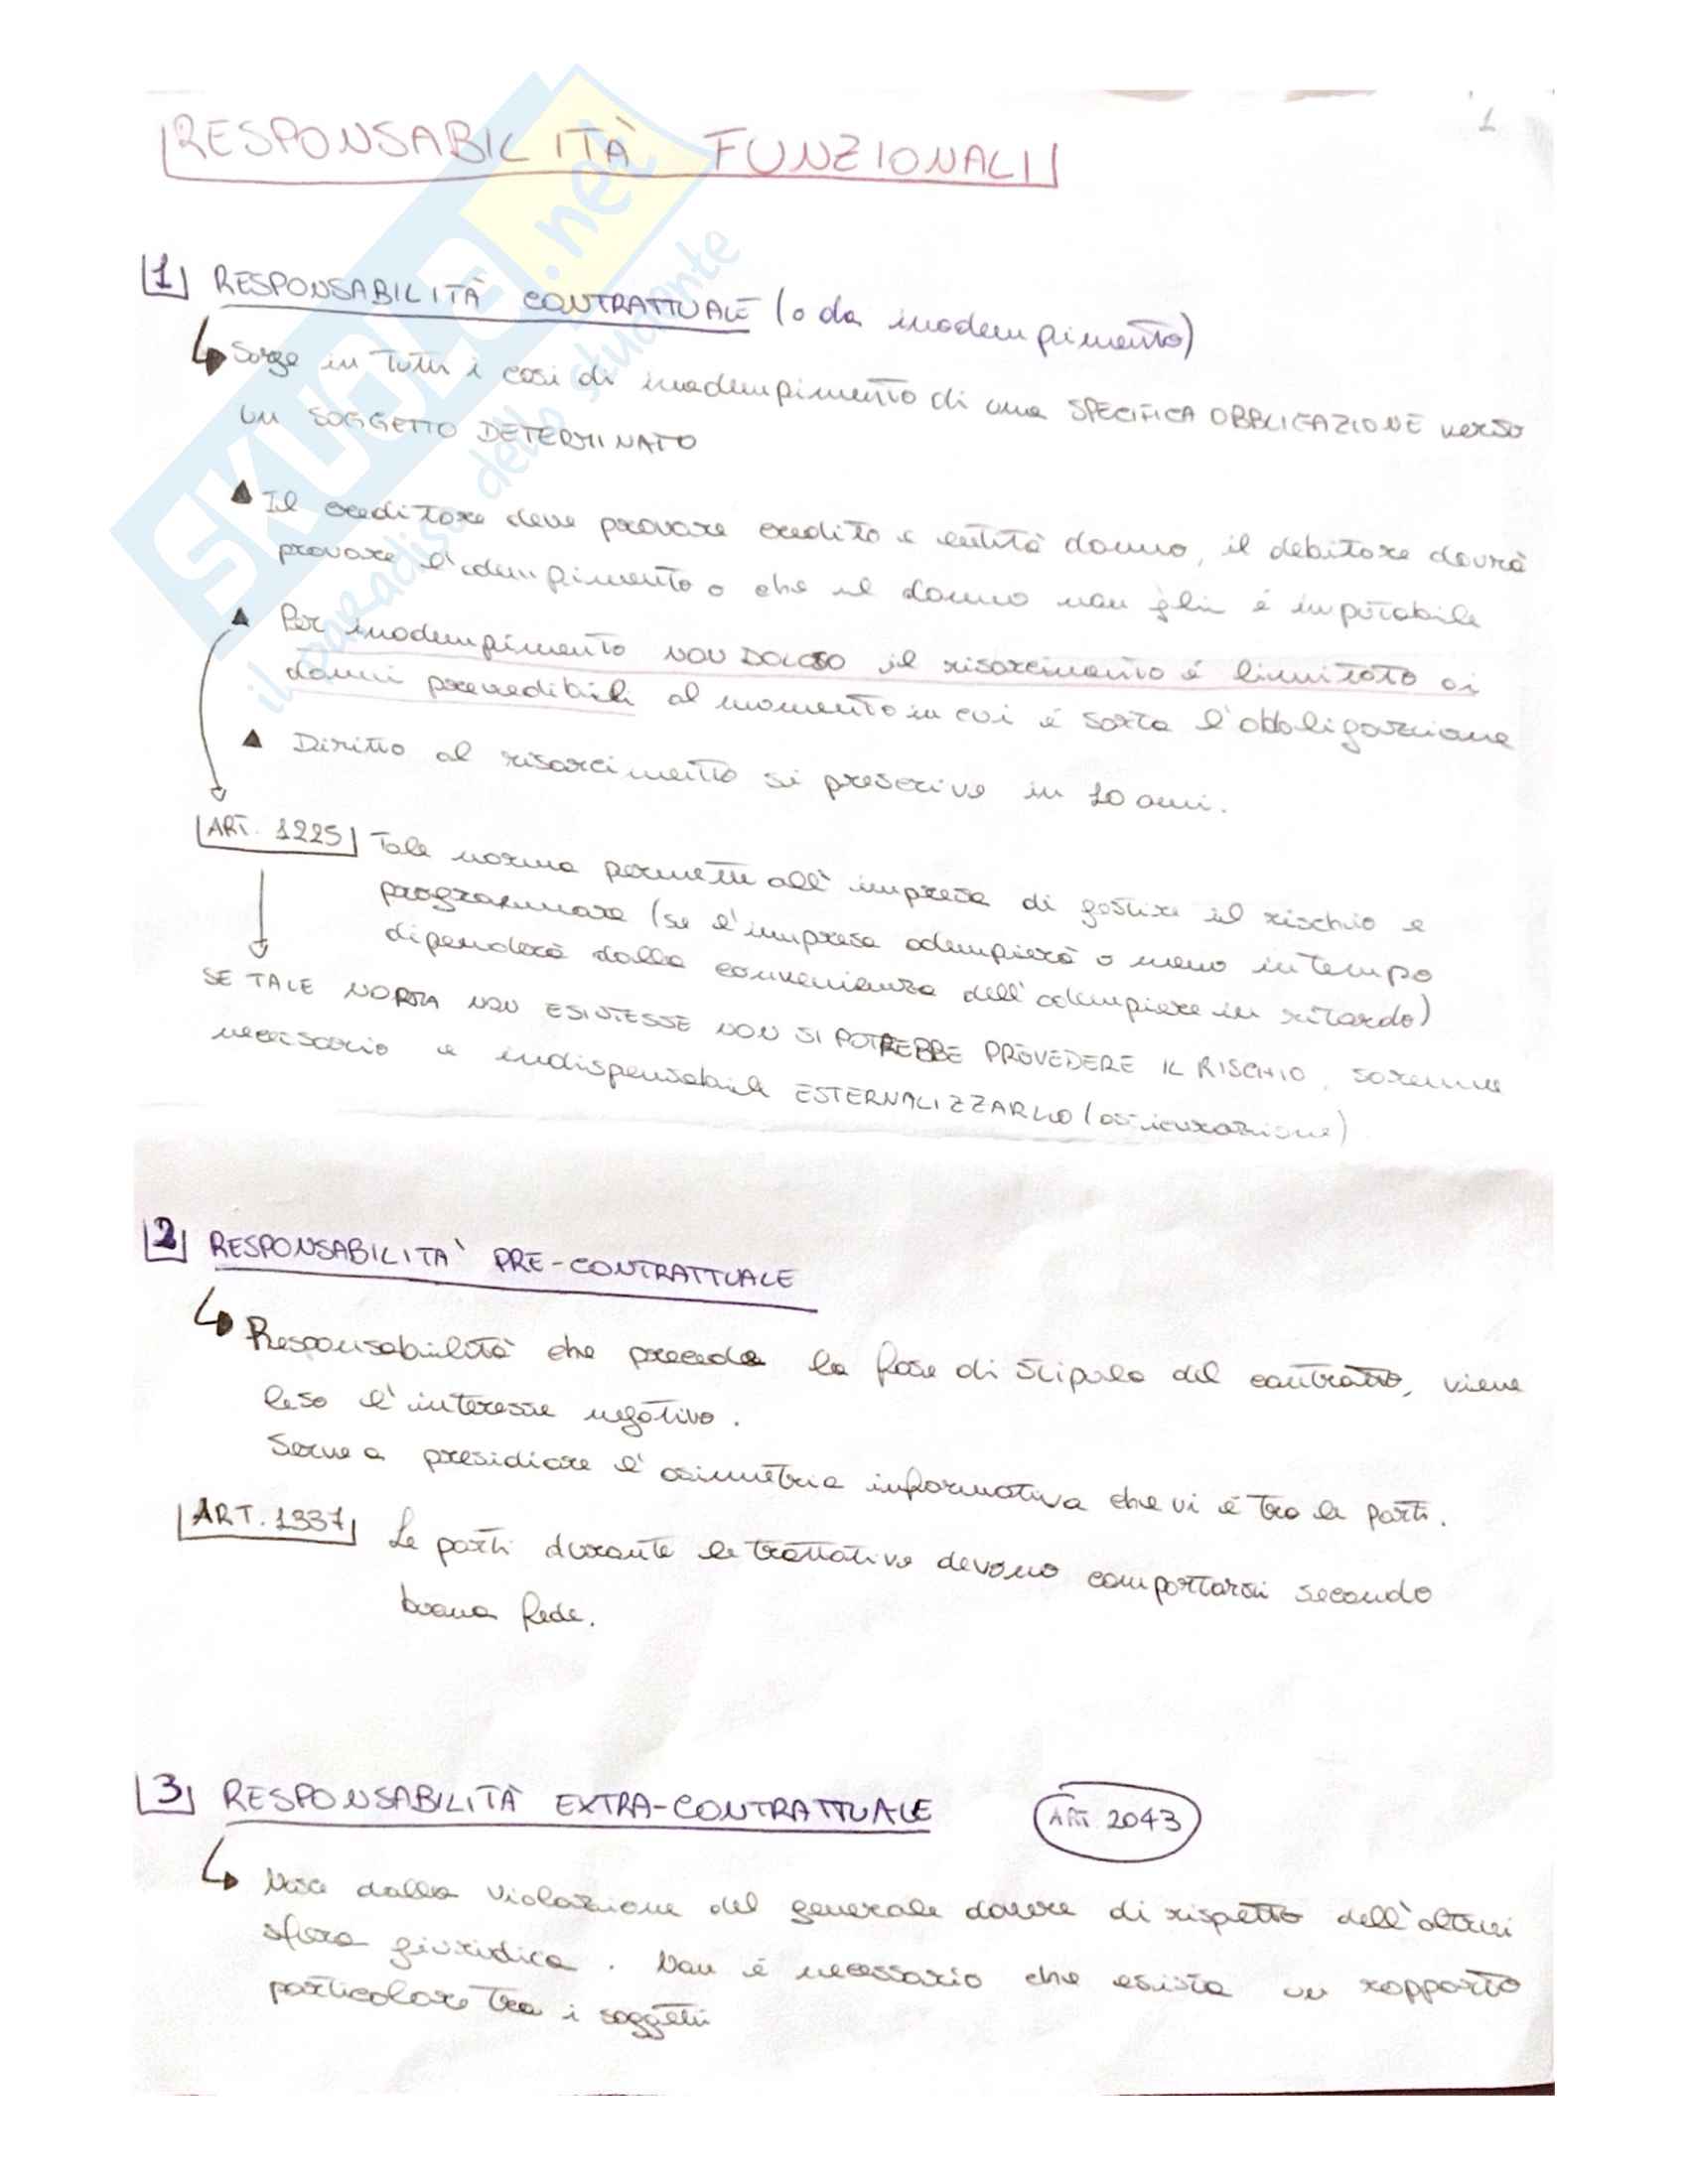 1
RESPONSABILITÀ FUNZIONALI
1 RESPONSABILITÀ CONTRATTUALE (o da inadempimento)
Sorge in tutti i casi di inadempimento di una SPECIFICA OBBLIGAZIONE verso
un SOGGETTO DETERMINATO
▲ Il creditore deve provare credito e entità danno, il debitore dovrà
provare l'adempimento o che il danno non gli è imputabile
▲ Per inadempimento NON DOLOSO il risarcimento è limitato ai
danni prevedibili al momento in cui è sorta l'obbligazione
▲ Diritto al risarcimento si prescrive in 10 anni.
ART. 1225 Tale norma permette all'impresa di gestire il rischio e
programmare (se l'impresa adempierà o meno in tempo
dipenderà dalla convenienza dell'adempiere in ritardo)
SE TALE NORMA NON ESISTESSE NON SI POTREBBE PREVEDERE IL RISCHIO, sarebbe
necessario e indispensabile ESTERNALIZZARLO (assicurazione)
2 RESPONSABILITA' PRE-CONTRATTUALE
Responsabilità che precede la fase di stipula del contratto, viene
leso l'interesse negativo.
Serve a presidiare l'asimmetria informativa che vi è tra le parti.
ART. 1337 Le parti durante le trattative devono comportarsi secondo
buona fede.
3 RESPONSABILITÀ EXTRA-CONTRATTUALE ART. 2043
Nasce dalla violazione del generale dovere di rispetto dell'altrui
sfera giuridica. Non è necessario che esista un rapporto
particolare tra i soggetti
SKUOLA.net
il paradiso dello studente